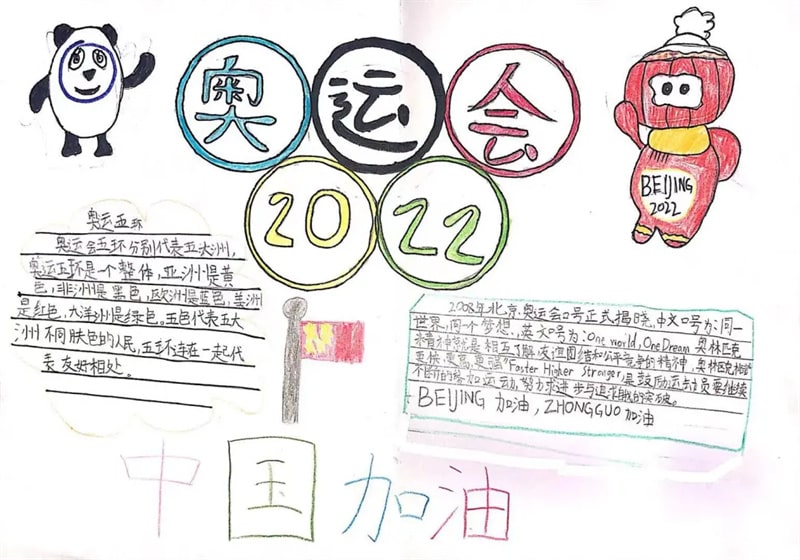 奥运会
2022
BEIJING
2022
奥运五环
奥运会五环分别代表五大洲,
奥运五环是一个整体,亚洲是黄
色,非洲是黑色,欧洲是蓝色,美洲
是红色,大洋洲是绿色。五色代表五大
洲不同肤色的人民,五环连在一起代
表友好相处。
2008年北京奥运会口号正式揭晓,中文口号为:同一
世界,同一个梦想,英文口号为:One world,One Dream 奥林匹克
精神就是相互了解友谊团结和公平竞争的精神,奥林匹克
更快更高更强"Faster Higher Stronger,是鼓励运动员要继续
不断的参加运动,努力求进步与追求的突破。
BEIJING 加油,ZHONGGUO加油
中国加油